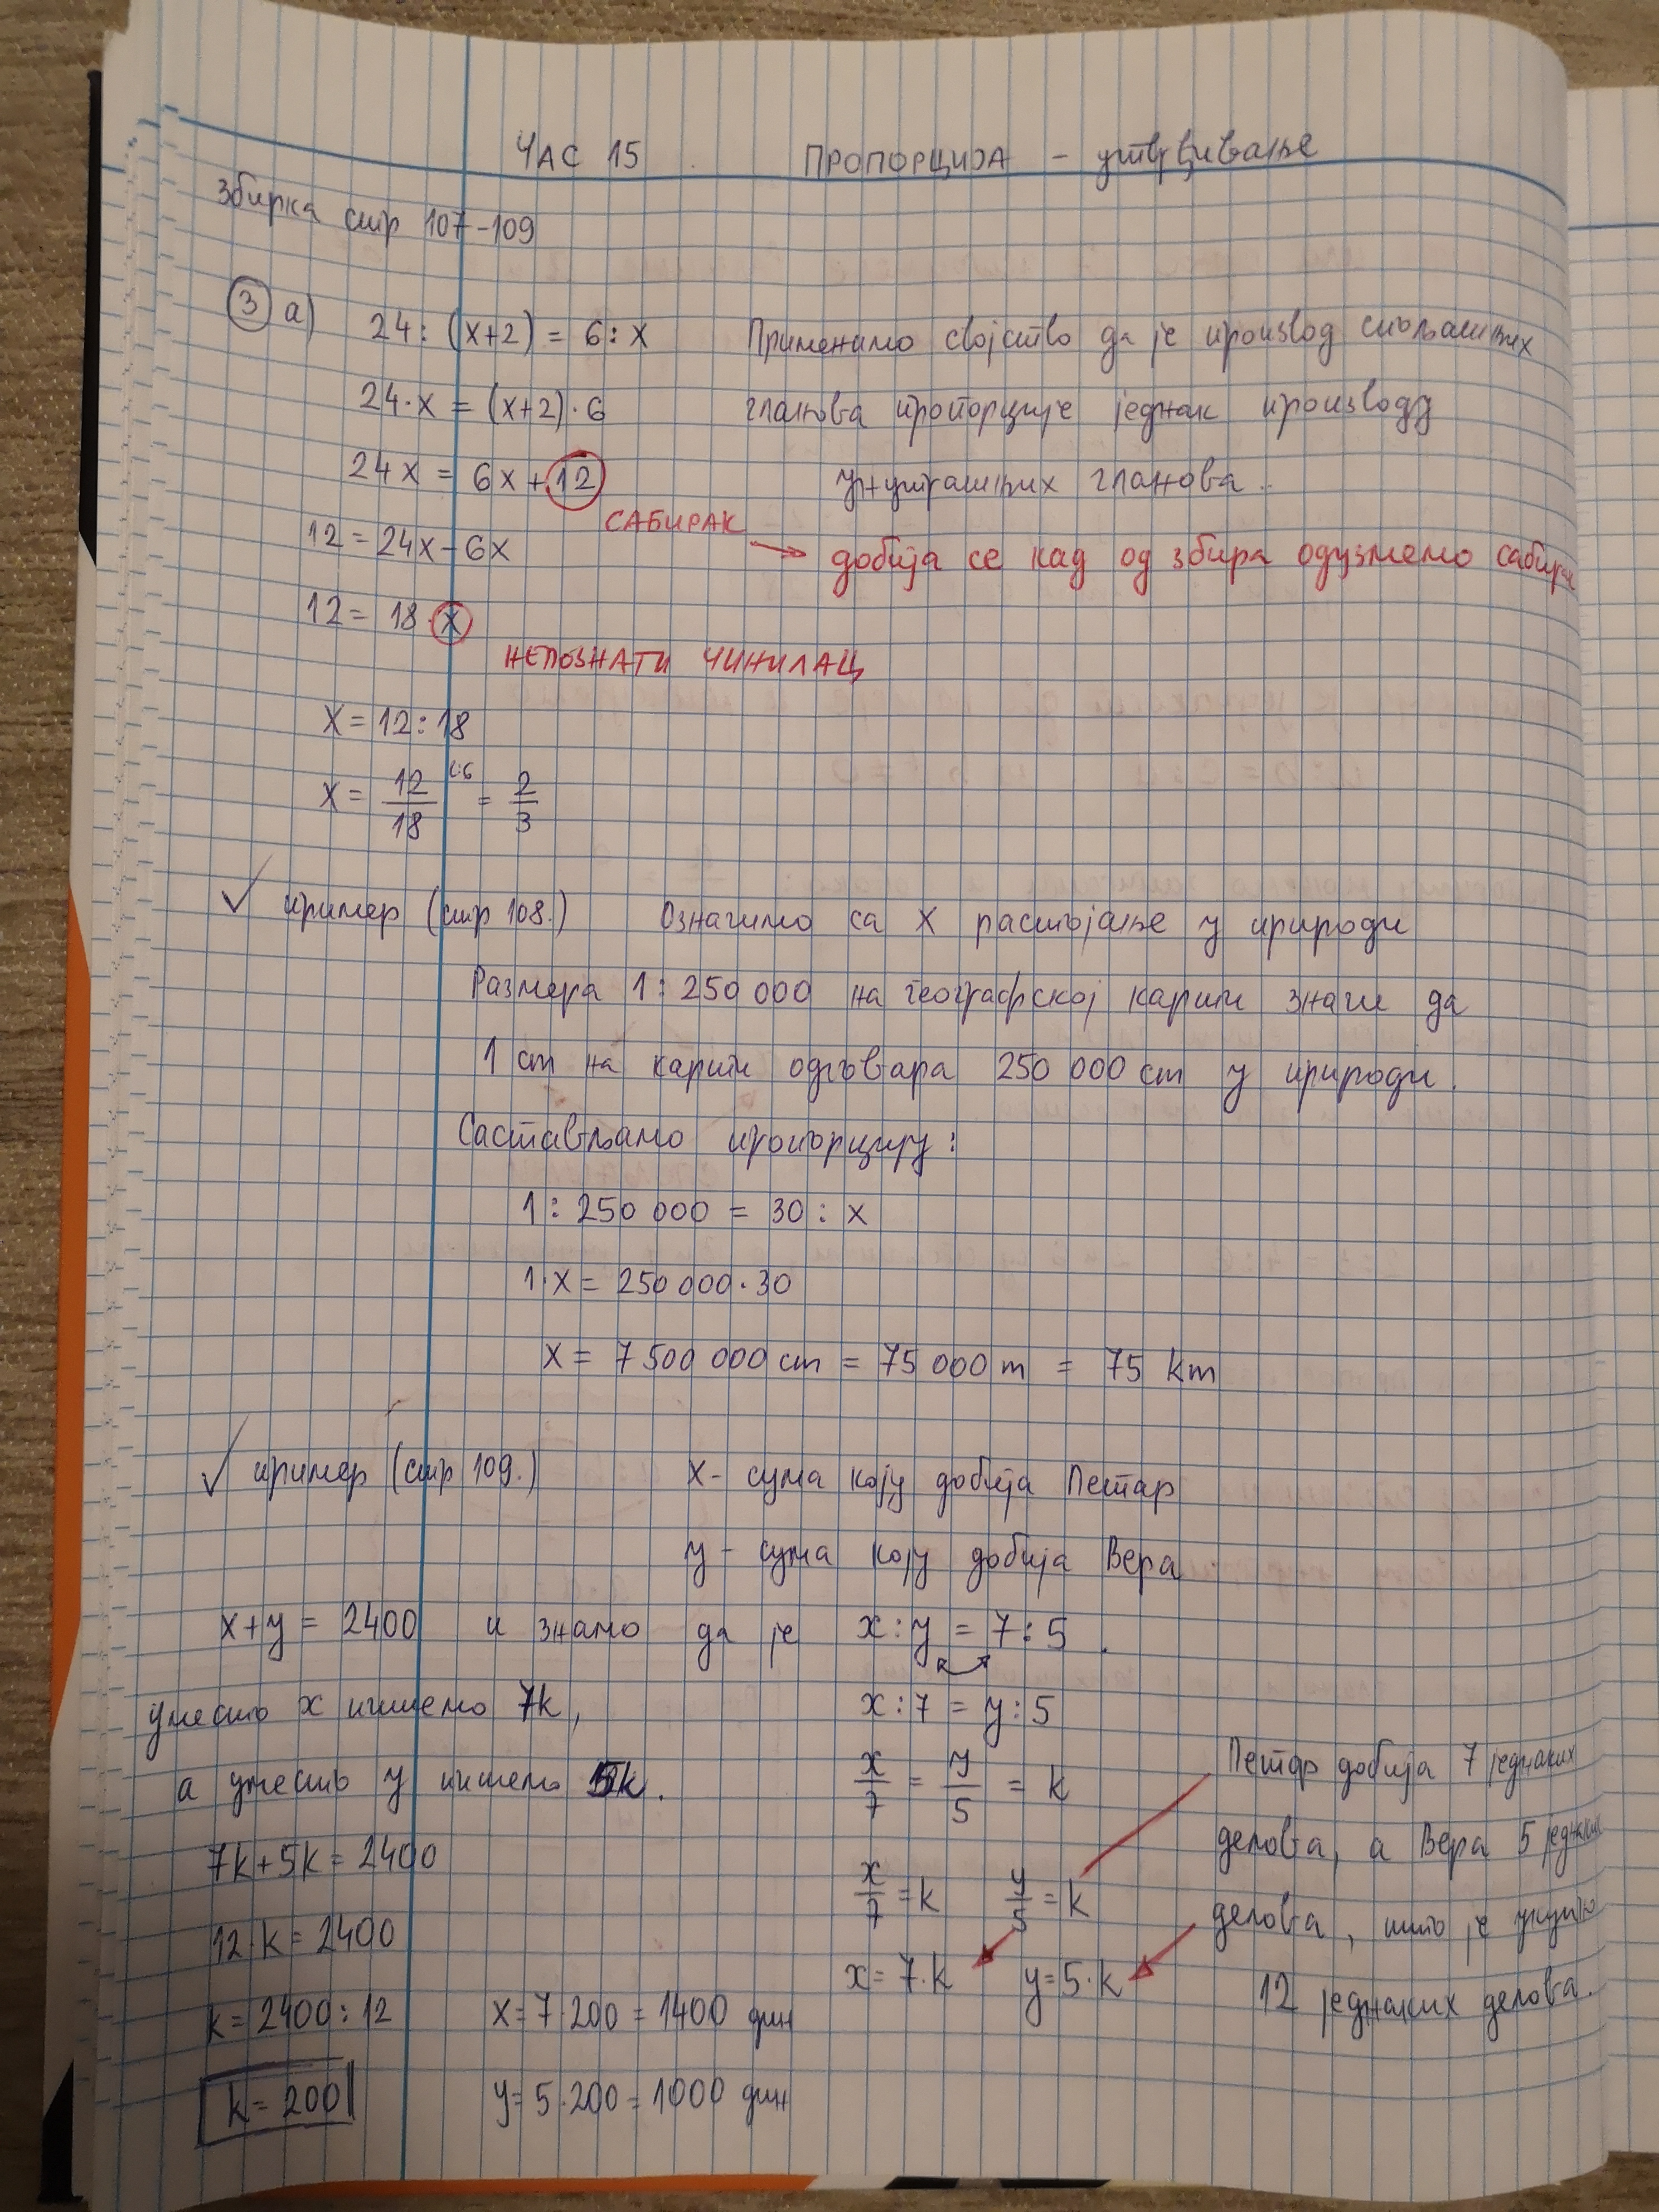 ЧАС 15 ПРОПОРЦИЈА - утврђивање
Збирка стр 107-109
3 а) 24 : (x+2) = 6 : x Применамо својство да је производ спољашњих
24·x = (x+2)·6 чланова пропорције једнак производу
24x = 6x + 12 унутрашњих чланова.
САБИРАК
12 = 24x - 6x добија се кад од збира одузмемо сабирак
12 = 18·x
НЕПОЗНАТИ ЧИНИЛАЦ
x = 12 : 18
x = 12/18 (:6 = 2/3
✓ пример (стр 108.) Означимо са x растојање у природи
Размера 1 : 250 000 на географској карти значи да
1 cm на карти одговара 250 000 cm у природи.
Састављамо пропорцију:
1 : 250 000 = 30 : x
1·x = 250 000·30
x = 7 500 000 cm = 75 000 m = 75 km
✓ пример (стр 109.) x - сума коју добија Петар
y - сума коју добија Вера
x+y = 2400 и знамо да је x : y = 7 : 5.
уместо x пишемо 7k, x : 7 = y : 5
а уместо y пишемо 5k. x/7 = y/5 = k Петар добија 7 једнаких
7k+5k = 2400 делова, а Вера 5 једнаких
x/7 = k y/5 = k делова, што је укупно
12·k = 2400
x = 7·k y = 5·k 12 једнаких делова.
k = 2400 : 12 x = 7·200 = 1400 дин
k = 200 y = 5·200 = 1000 дин